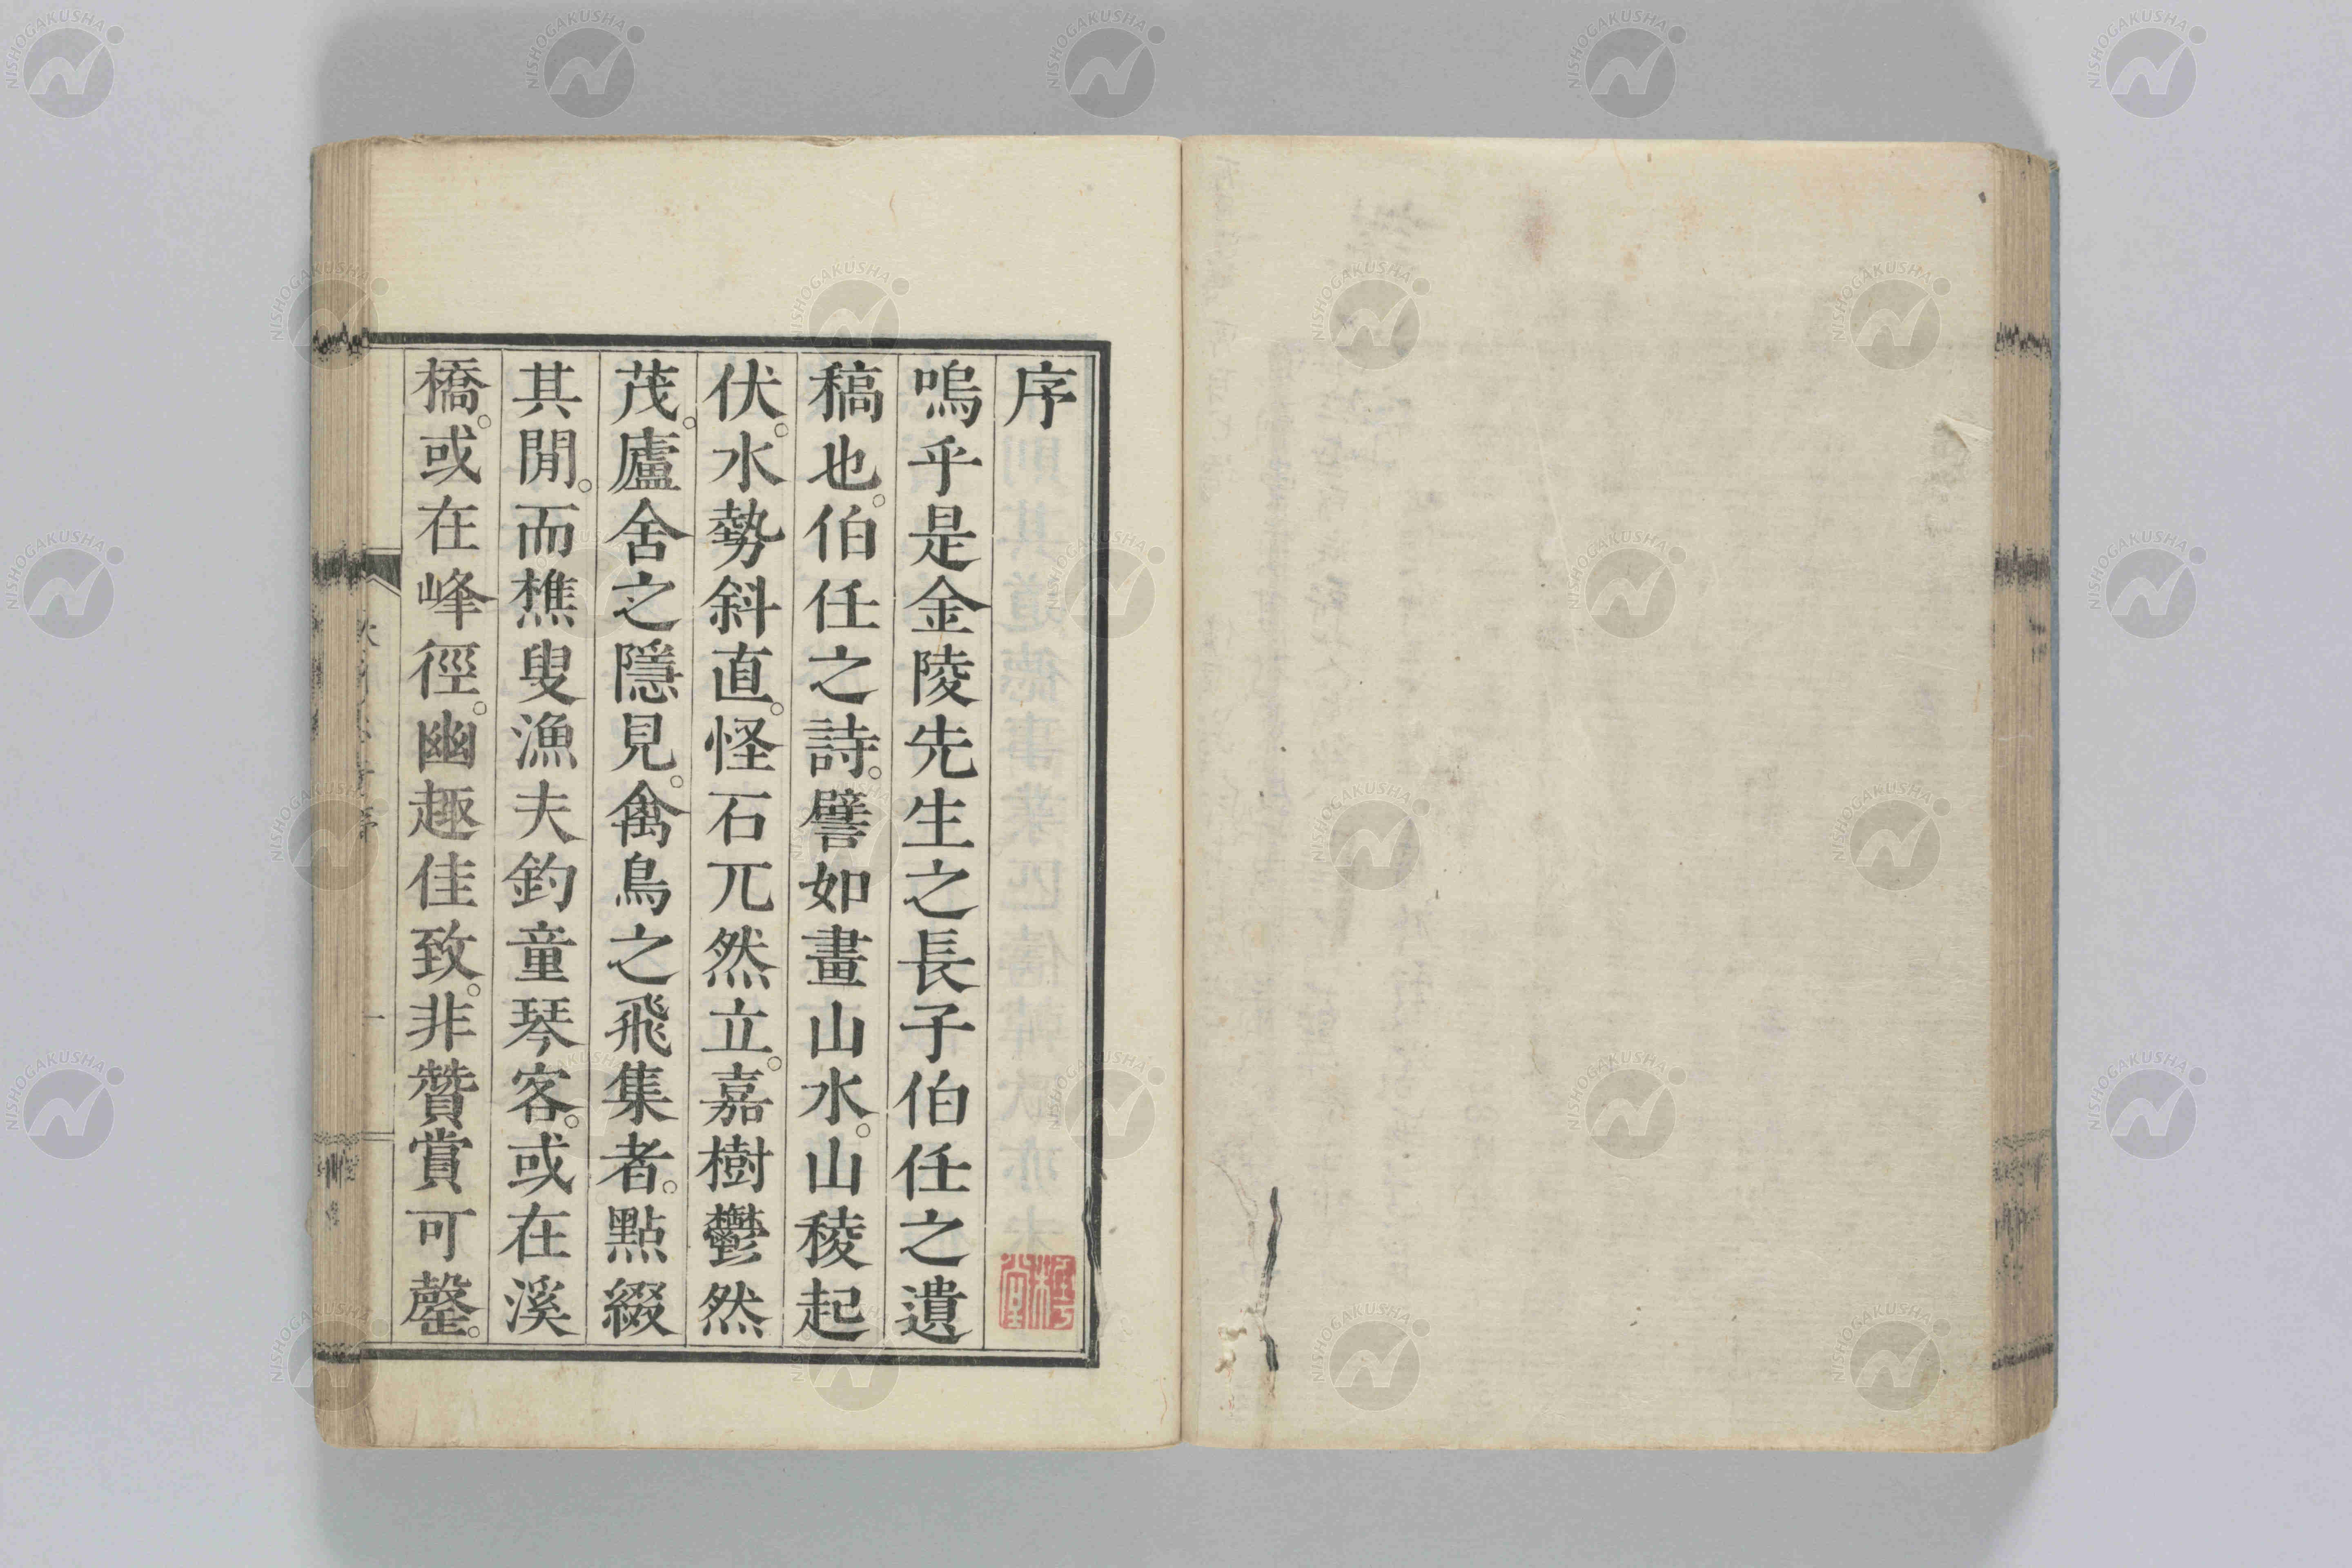 序
嗚乎是金陵先生之長子伯任之遺
稿也。伯任之詩。譬如畫山水。山稜起
伏。水勢斜直。怪石兀然立。嘉樹鬱然
茂。廬舍之隱見。禽鳥之飛集者。點綴
其閒。而樵叟漁夫釣童琴客。或在溪
橋。或在峰徑。幽趣佳致。非贊賞可罄。
一
NISHOGAKUSHA